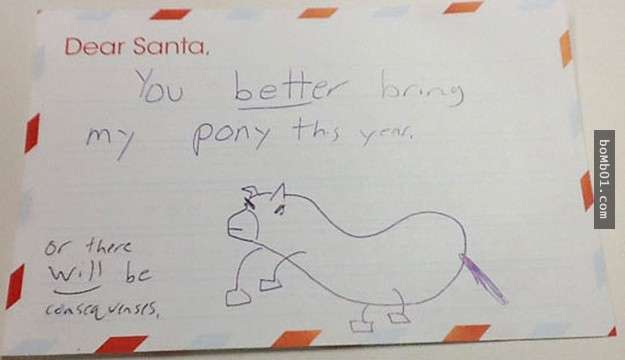 Dear Santa,
You better bring
my pony ths year.
or there
will be
consequenses.
boMb01.com